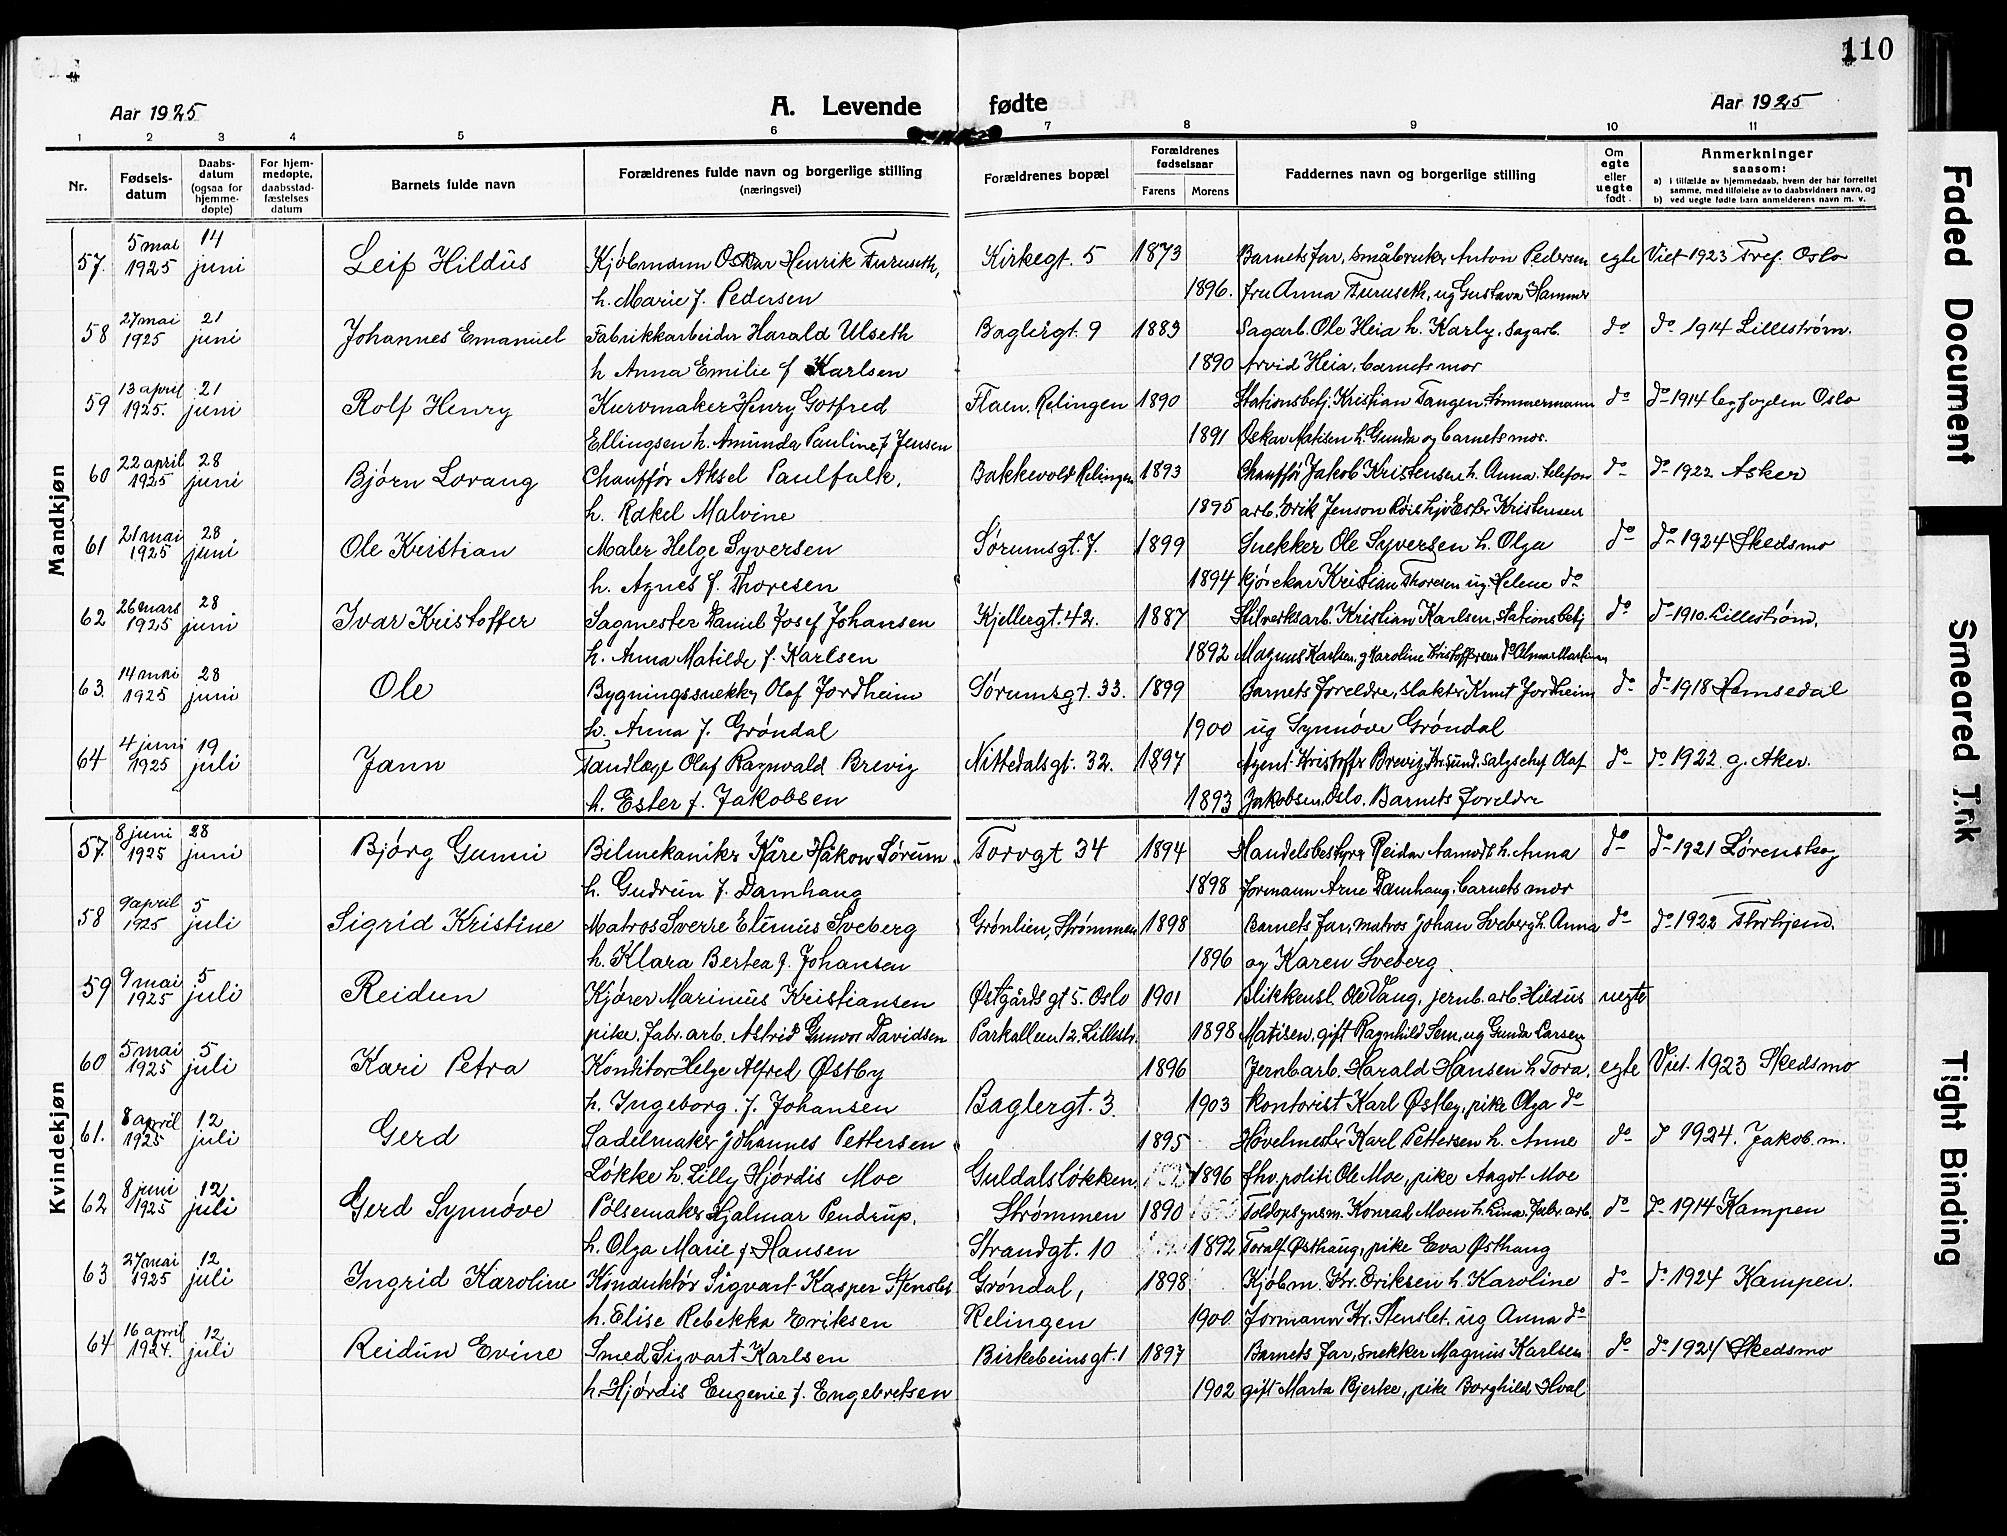 110
Aar 1925 A. Levende fødte Aar 1925
1 2 3 4 5 6 7 8 9 10 11
Nr. Fødsels-datum Daabs-datum (ogsaa for hjemme-døpte) For hjem-medøpte, daabsstad-fæstelses datum Barnets fulde navn Forældrenes fulde navn og borgerlige stilling (næringsvei) Forældrenes bopæl Forældrenes fødselsaar Farens Morens Faddernes navn og borgerlige stilling Om egte eller uegte født. Anmerkninger saasom:
a) i tilfælde av hjemmedaab, hvem der har forrettet samme, med tilføielse av to daabsvidners navn, og
b) ved uegte fødte barn anmelderens navn m. v.
Mandkjøn
57. 5 mai 1925 14 juni Leif Hildus Kjøbmann Oskar Henrik Furuseth, Kirkegt. 5 1873 Barnets far, småbruker Anton Pedersen egte Viet 1923 Tref. Oslo
h. Marie f. Pedersen 1896. fru Anna Furuseth, ug Gustava Hammer
58 27 mai 1925 21 juni Johannes Emanuel Fabrikkarbeider Harald Ulseth Baglergt. 9 1883 Sagarb. Ole Heia h. Karly, sagarb. do do 1914 Lillestrøm.
h Anna Emilie f Karlsen 1890 Arvid Heia, barnets mor
59 13 april 1925. 21 juni Rolf Henry Kurvmaker Henry Gotfred Flaen, Relingen 1890 Stationsbetj. Kristian Tangen tømmermann do do 1914 byfogden Oslo
Ellingsen h. Amunda Pauline f Jensen 1891 Oskar Matisen h. Gunda og barnets mor.
60 22 april 1925 28 juni Bjørn Lorang Chauffør Aksel Paulfalk, Bakkevold Relingen 1893 Chauffør Jakob Kristensen h. Anna, telefon do do 1922 Asker
h. Rakel Malvine 1895 arb. Erik Jenson hjv Ester Kristensen
61 21 mai 1925 28 juni Ole Kristian Maler Helge Syversen Sørumsgt. 7. 1899 Snekker Ole Syversen h. Olga do do 1924 Skedsmo
h. Agnes f. Thoresen 1894 kjørekar Kristian Thoresen ug. Helene do
62 26 mars 1925 28 juni Ivar Kristoffer Sagmester Daniel Josef Johansen Kjellergt. 42. 1887 Kristian Karlsen, stationsbetj do do 1910. Lillestrøm,
h. Anna Matilde f. Karlsen 1892 Magnus Karlsen, g Karoline Kristoffersen do Alma
63. 14 mai 1925 28 juni Ole Bygningssnekker Olaf Jordheim Sørumsgt. 33. 1899 Barnets foreldre, slakter Knut Jordheim do do 1918 Hemsedal
h. Anna f. Grøndal 1900 ug Synnøve Grøndal
64 4 juni 1925 19 juli Jann Tandlæge Olaf Ragnvald Brevig Nittedalsgt. 32. 1897 Agent Kristoffer Brevig, Kr.sund, salgschef Olaf do do 1922 g. Aker.
h. Ester f. Jakobsen 1893 Jakobsen, Oslo. Barnets foreldre
Kvindekjøn
57. 8 juni 1925 28 juni Bjørg Gunni Bilmekaniker Kåre Håkon Sørum Torvgt 34 1894 Handelsbestyrer Reidar Aamodt h. Anna do do 1921 Lørenskog
h. Gudrun f. Damhaug 1898 formann Arne Damhaug, barnets mor
58 9 april 1925 5 juli Sigrid Kristine Matros Sverre Elenius Sveberg Grønlien, Strømmen 1898 Barnets far, matros Johan Sveberg h. Anna do do 1922 Thrhjem.
h. Klara Bertea f. Johansen 1896 og Karen Sveberg.
59 9 mai 1925 5 juli Reidun Kjører Marinius Kristiansen Østgårds gt 5. Oslo 1901 Blikkensl. Ole Vaug, jernb. arb. Hildus uegte
pike, fabr. arb. Astrid Gunvor Davidsen Parkalleen 12. Lillestr. 1898 Matisen, gift Ragnhild Sem, ug Gunda Larsen
60 5 mai 1925 5 juli Kari Petra Konditor Helge Alfred Østby 1896 Jernbarb. Harald Hansen h Tora, egte Viet. 1923 Skedsmo
h. Ingeborg. f. Johansen Baglergt. 3 1903 kontorist Karl Østby, pike Olga do
61. 8 april 1925 12 juli Gerd Sadelmaker Johannes Pettersen 1895 Høvelmester Karl Pettersen h. Anne do d 1924. Jakob. m.
Løkke h. Lilly Hjørdis Moe Guldalsløkken 1896 fhv. politi Ole Moe, pike Aagot Moe
62 8 juni 1925 12 juli Gerd Synnøve Pølsemaker Hjalmar Pendrup, Strømmen 1890 Toldopsynsm. Konrad Moen h. Lina, fabr. arb. do do 1914 Kampen
h. Olga Marie f. Hansen Strandgt. 10 1892 Toralf Østhaug, pike Eva Østhaug
63 27 mai 1925 12 juli Ingrid Karoline Konduktør Sigvart Kasper Stenslet Grøndal, 1898 Kjøbm. Kr. Eriksen h. Karoline do do 1924 Kampen.
h. Elise Rebekka Eriksen Relingen 1900. formann Kr. Stenslet. ug Anna do
64 16 april 1924. 12 juli Reidun Evine Smed Sigvart Karlsen Birkebeinsgt. 1 1897 Barnets far, snekker Magnus Karlsen do do 1924 Skedsmo
h. Hjørdis Eugenie f. Engebretsen 1902 gift Marta Bjerke, pike Borghild Hval
Faded Document
Smeared Trk
Tight Binding